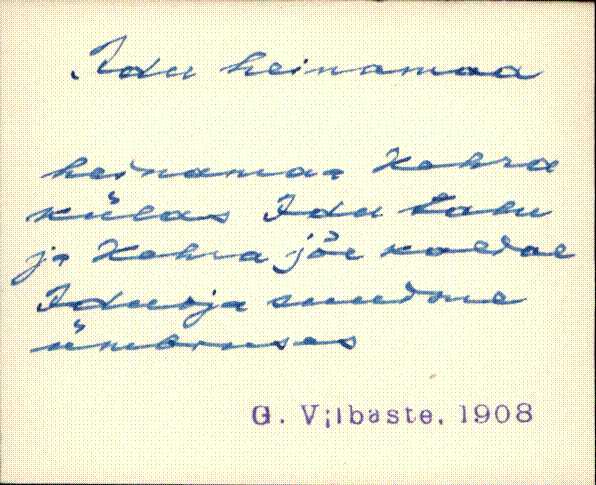 Idu heinamaa
heinamaa Kehra
külas Idu talu
ja Kehra jõe kaldal
Iduoja suudme
ümbruses
G. Vilbaste, 1908